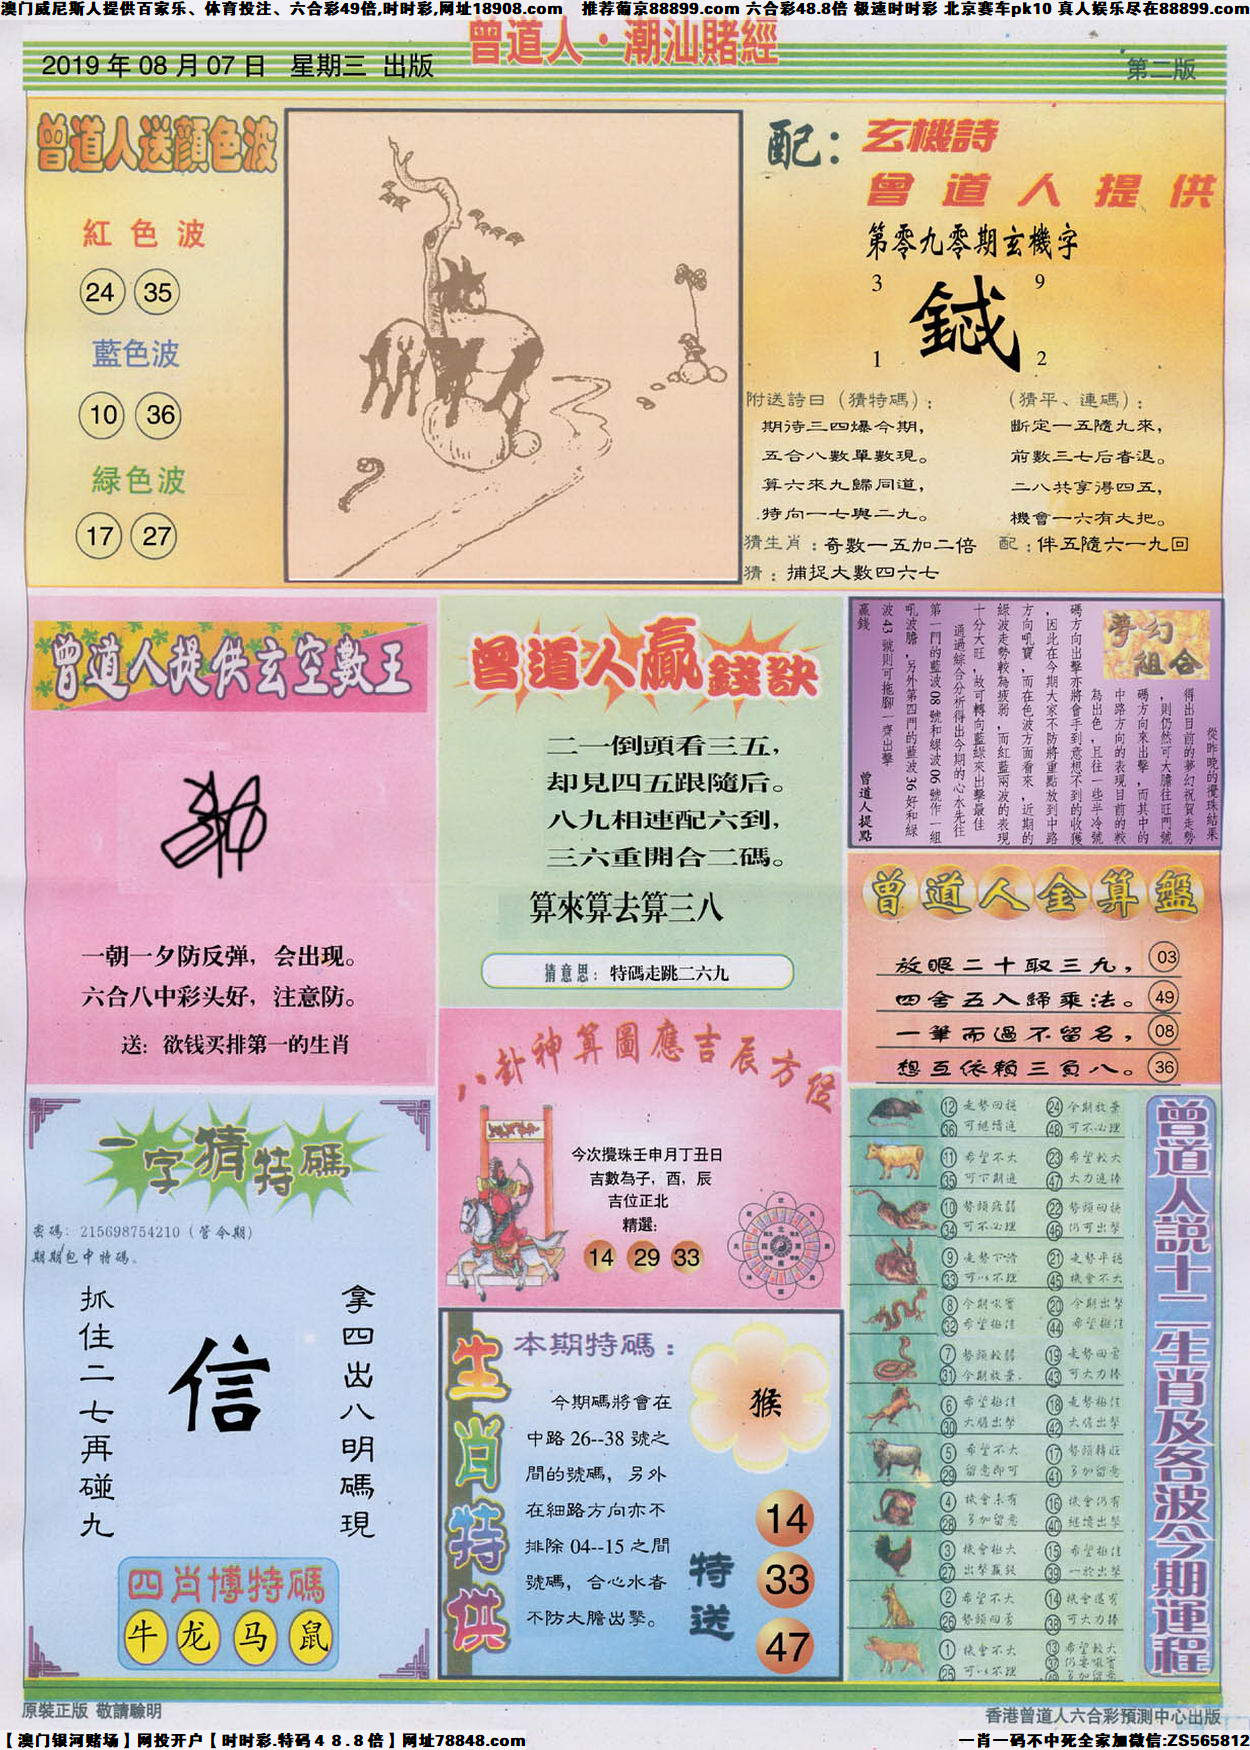 澳门威尼斯人提供百家乐、体育投注、六合彩49倍,时时彩,网址18908.com 推荐葡京88899.com 六合彩48.8倍 极速时时彩 北京赛车pk10 真人娱乐尽在88899.com
曾道人·潮汕賭經
2019年08月07日 星期三 出版
第二版
曾道人送顏色波
紅色波
24 35
藍色波
10 36
緑色波
17 27
配：玄機詩
曾道人提供
第零九零期玄機字
3 9
1 2
附送詩曰（猜特碼）：
期待三四爆今期，
五合八數單數現。
算六來九歸同道，
特向一七與二九。
猜生肖：奇數一五加二倍
猜：捕捉大數四六七
（猜平、連碼）：
斷定一五隨九來，
前數三七后者退。
二八共享得四五，
機會一六有大把。
配：伴五隨六一九回
曾道人提供玄空數王
一朝一夕防反弹，会出现。
六合八中彩头好，注意防。
送：欲钱买排第一的生肖
曾道人贏錢訣
二一倒頭看三五，
却見四五跟隨后。
八九相連配六到，
三六重開合二碼。
算來算去算三八
猜意思：特碼走跳二六九
夢幻組合
從昨晚的攪珠結果
得出目前的夢幻祝賀走勢
，則仍然可大膽往旺門號
碼方向來出擊，而其中的
中路方向的表現目前的較
為出色，且往一些半冷號
碼方向出擊亦將會手到意想不到的收獲
，因此在今期大家不防將重點放到中路
方向吼寶，而在色波方面看來，近期的
綠波走勢較為疲弱，而紅藍兩波的表現
十分大旺，故可轉向藍綠來出擊最佳
通過綜合分析得出今期的心水先往
第一門的藍波08號和綠波06號作一組
吼波膽，另外第四門的藍波36好和綠
波43號則可拖腳一齊出擊
贏錢
曾道人提點
曾道人金算盤
放眼二十取三九， 03
四舍五入歸乘法。 49
一筆而過不留名， 08
想互依賴三負八。 36
八卦神算圖應吉辰方位
今次攪珠壬申月丁丑日
吉數為子，酉，辰
吉位正北
精選：
14 29 33
一字猜特碼
密碼：215698754210（管今期）
期期包中特碼。
拿四出八明碼現
信
抓住二七再碰九
四肖博特碼
牛 龙 马 鼠
生肖特供
本期特碼：
猴
今期碼將會在
中路26--38號之
間的號碼，另外
在細路方向亦不
排除04--15之間
號碼，合心水者
不防大膽出擊。
特送
14
33
47
曾道人說十二生肖及各波今期運程
12 走勢回穩 24 今期放棄
36 可繼續追 48 可不必理
11 希望不大 23 希望較大
35 可下期追 47 大力追捧
10 勢頭疲弱 22 勢頭回穩
34 可不必理 46 仍可出擊
9 走勢下滑 21 走勢平穩
33 可以不理 45 機會不大
8 今期吼寶 20 今期出擊
32 希望極佳 44 希望極佳
7 勢頭較弱 19 走勢回雷
31 今期放棄。 43 可大力捧
6 希望極佳 18 走勢極佳
30 大膽出擊 42 大膽出擊
5 希望不大 17 勢頭轉旺
29 留意即可 41 多加留意
4 機會未有 16 機會仍有
28 多加留意 40 繼續出擊
3 機會極大 15 希望極佳
27 出擊贏錢 39 一於出擊
2 希望不大 14 機會還有
26 勢頭回落 38 可大力捧
1 機會不大 13 希望較大
25 可以不理 37 仍要吼寶
49 多加留意
原裝正版 敬請驗明
香港曾道人六合彩預測中心出版
【澳门银河赌场】网投开户【时时彩.特码48.8倍】网址78848.com
一肖一码不中死全家加微信:ZS565812